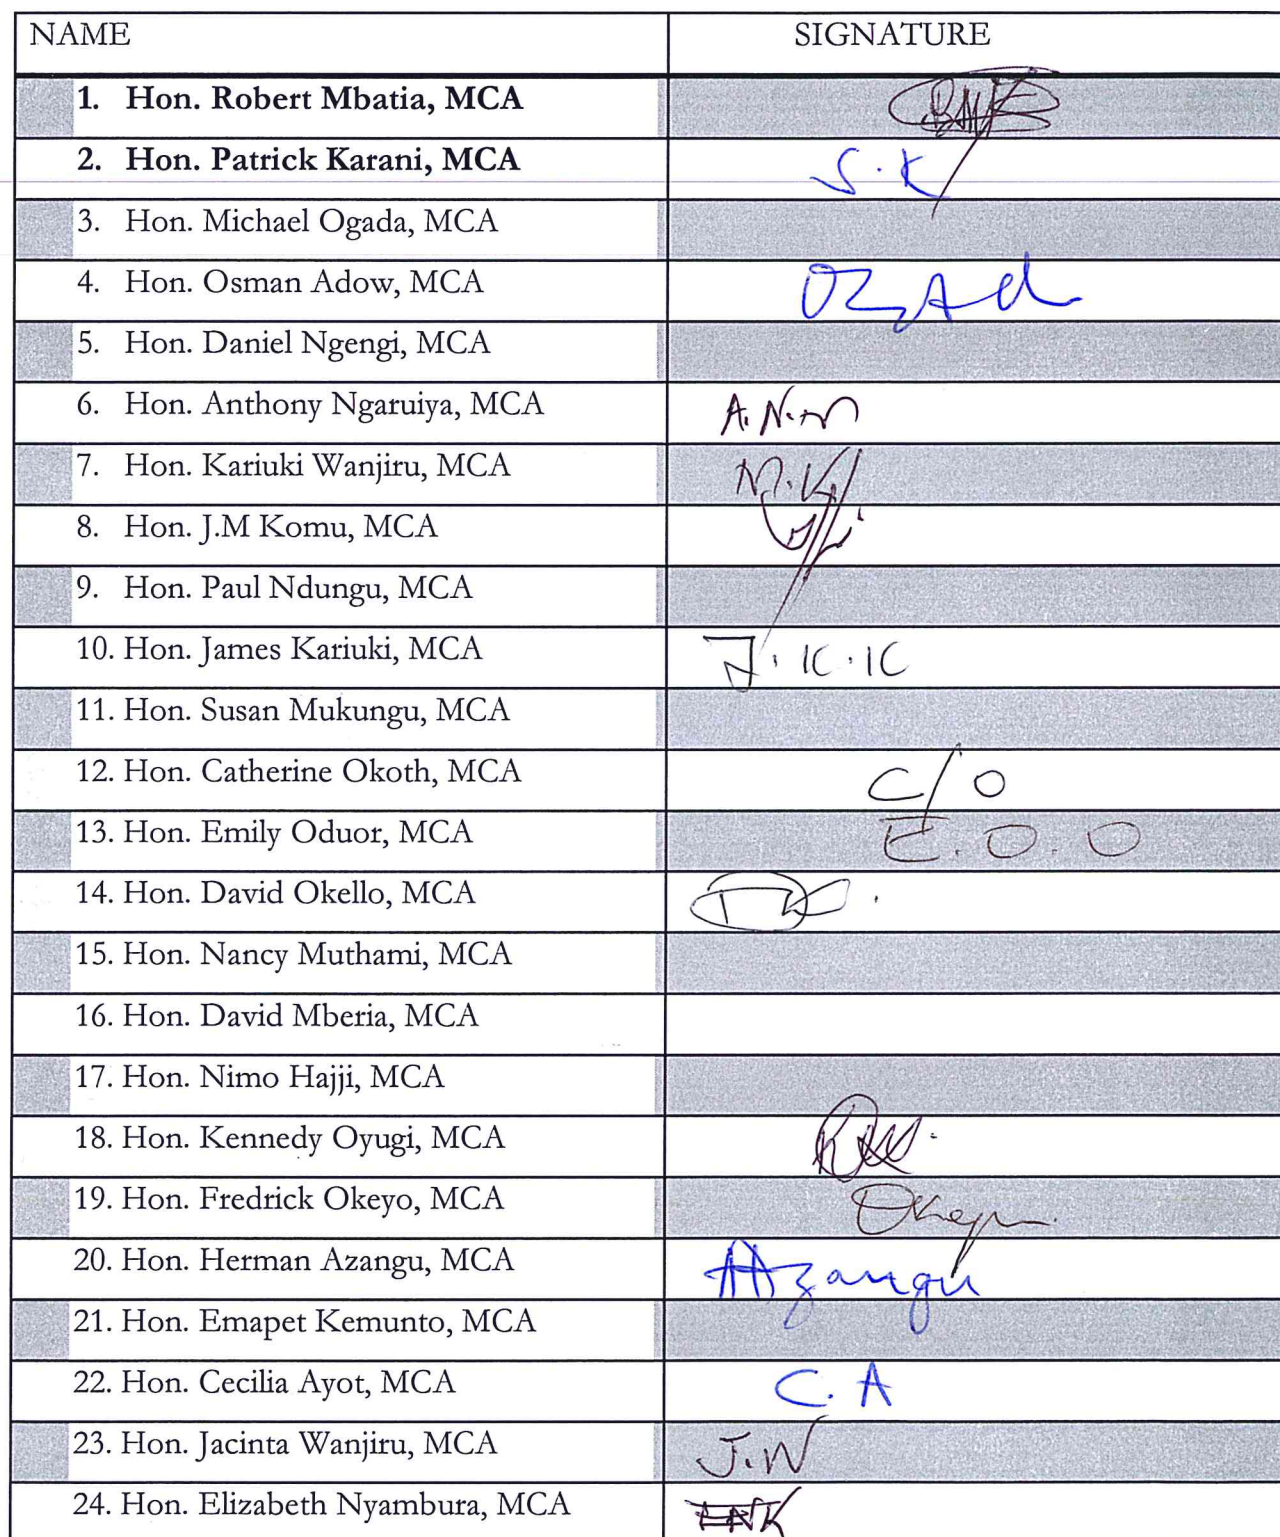 NAME SIGNATURE
1. Hon. Robert Mbatia, MCA
2. Hon. Patrick Karani, MCA S.K
3. Hon. Michael Ogada, MCA
4. Hon. Osman Adow, MCA
5. Hon. Daniel Ngengi, MCA
6. Hon. Anthony Ngaruiya, MCA
7. Hon. Kariuki Wanjiru, MCA
8. Hon. J.M Komu, MCA
9. Hon. Paul Ndungu, MCA
10. Hon. James Kariuki, MCA J.K.K
11. Hon. Susan Mukungu, MCA
12. Hon. Catherine Okoth, MCA C/O
13. Hon. Emily Oduor, MCA E.O.O
14. Hon. David Okello, MCA
15. Hon. Nancy Muthami, MCA
16. Hon. David Mberia, MCA
17. Hon. Nimo Hajji, MCA
18. Hon. Kennedy Oyugi, MCA
19. Hon. Fredrick Okeyo, MCA
20. Hon. Herman Azangu, MCA HAzangu
21. Hon. Emapet Kemunto, MCA
22. Hon. Cecilia Ayot, MCA C.A
23. Hon. Jacinta Wanjiru, MCA J.W
24. Hon. Elizabeth Nyambura, MCA